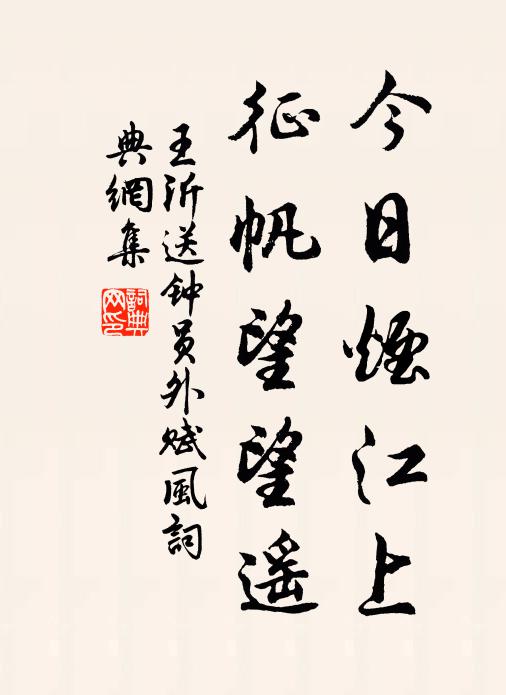 今日煙江上
征帆望望遥
王沂送钟员外赋風詞
典網集
詞典网印